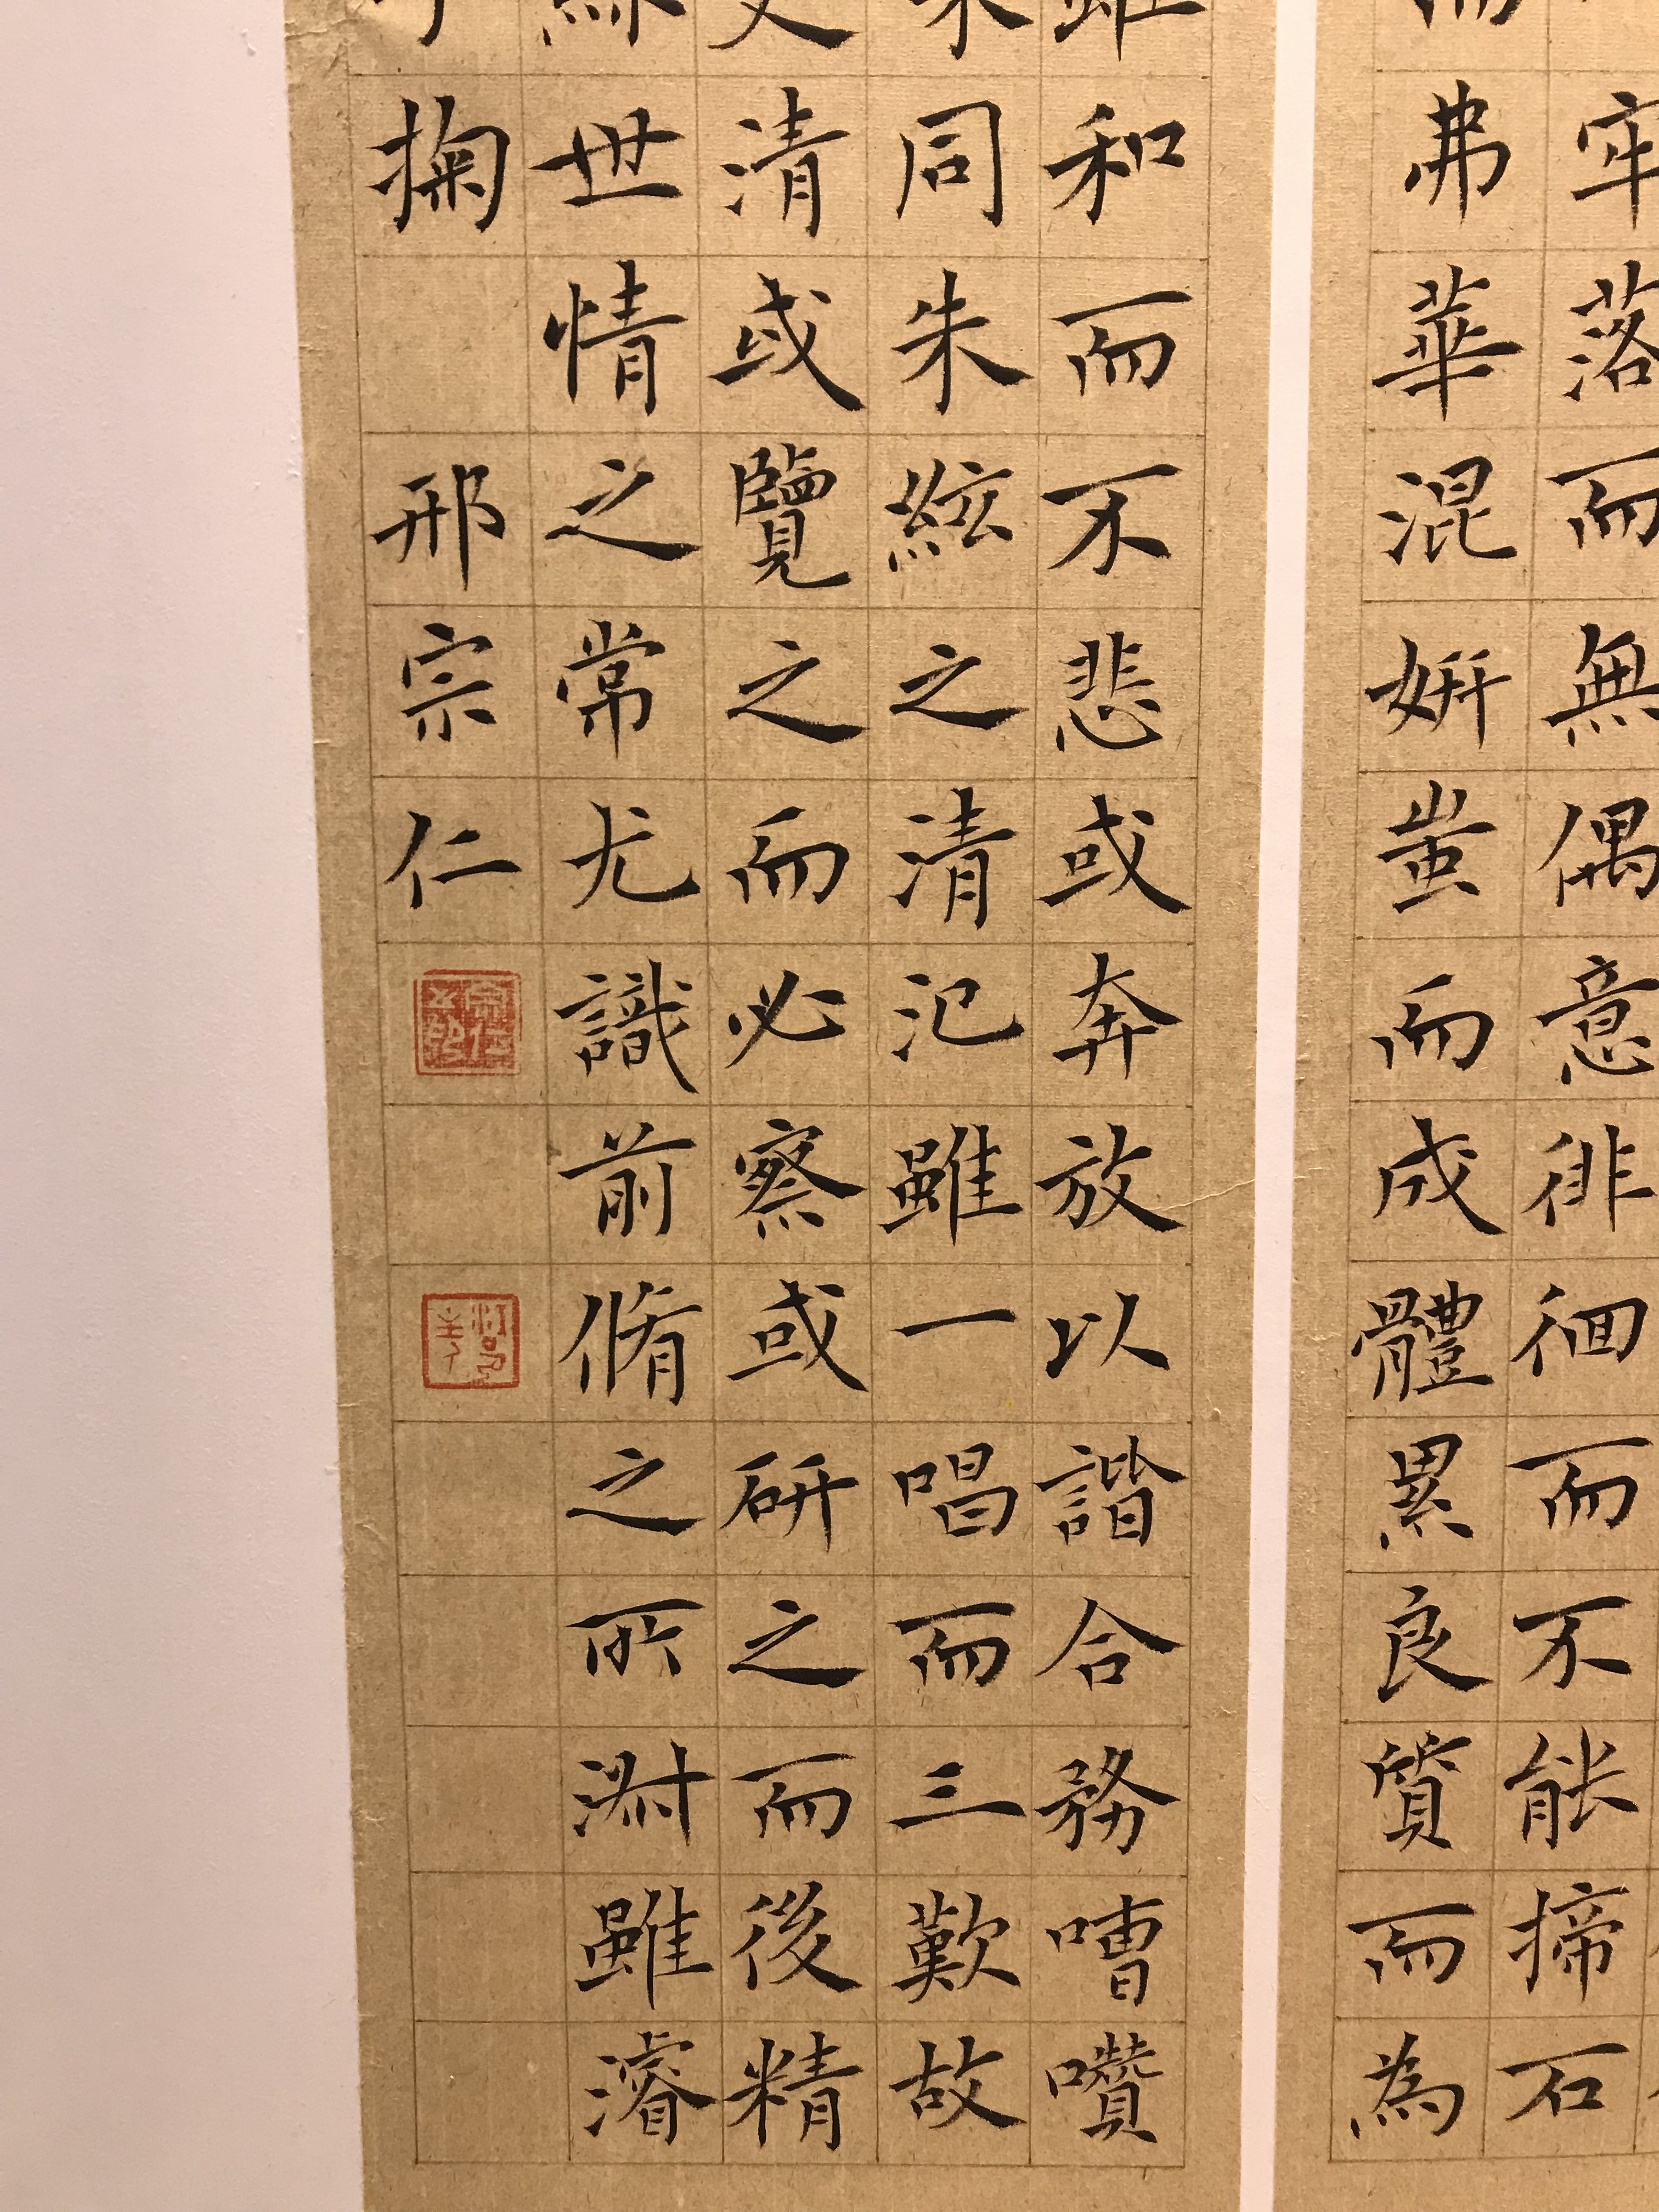 牢落而無偶意徘徊而不能揥石
弗華混妍蚩而成體累良質而為
雖和而不悲或奔放以諧合務嘈囋
同朱絃之清汜雖一唱而三歎故
清或覽之而必察或研之而後精
世情之常尤識前脩之所淑雖濬
掬 邢宗仁